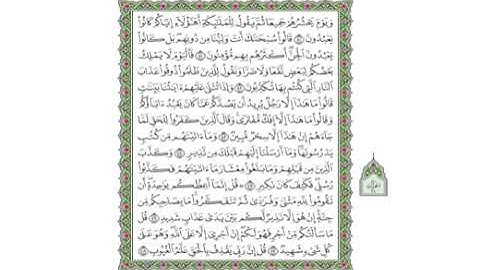 وَيَوْمَ يَحْشُرُهُمْ جَمِيعًا ثُمَّ يَقُولُ لِلْمَلَٰٓئِكَةِ أَهَٰٓؤُلَآءِ إِيَّاكُمْ كَانُوا۟
يَعْبُدُونَ ۝٤٠ قَالُوا۟ سُبْحَٰنَكَ أَنتَ وَلِيُّنَا مِن دُونِهِم بَلْ كَانُوا۟
يَعْبُدُونَ ٱلْجِنَّ أَكْثَرُهُم بِهِم مُّؤْمِنُونَ ۝٤١ فَٱلْيَوْمَ لَا يَمْلِكُ
بَعْضُكُمْ لِبَعْضٍ نَّفْعًا وَلَا ضَرًّا وَنَقُولُ لِلَّذِينَ ظَلَمُوا۟ ذُوقُوا۟ عَذَابَ
ٱلنَّارِ ٱلَّتِى كُنتُم بِهَا تُكَذِّبُونَ ۝٤٢ وَإِذَا تُتْلَىٰ عَلَيْهِمْ ءَايَٰتُنَا بَيِّنَٰتٍ
قَالُوا۟ مَا هَٰذَآ إِلَّا رَجُلٌ يُرِيدُ أَن يَصُدَّكُمْ عَمَّا كَانَ يَعْبُدُ ءَابَآؤُكُمْ
وَقَالُوا۟ مَا هَٰذَآ إِلَّآ إِفْكٌ مُّفْتَرًى وَقَالَ ٱلَّذِينَ كَفَرُوا۟ لِلْحَقِّ لَمَّا
جَآءَهُمْ إِنْ هَٰذَآ إِلَّا سِحْرٌ مُّبِينٌ ۝٤٣ وَمَآ ءَاتَيْنَٰهُم مِّن كُتُبٍ
يَدْرُسُونَهَا وَمَآ أَرْسَلْنَآ إِلَيْهِمْ قَبْلَكَ مِن نَّذِيرٍ ۝٤٤ وَكَذَّبَ
ٱلَّذِينَ مِن قَبْلِهِمْ وَمَا بَلَغُوا۟ مِعْشَارَ مَآ ءَاتَيْنَٰهُمْ فَكَذَّبُوا۟
رُسُلِى فَكَيْفَ كَانَ نَكِيرِ ۝٤٥ قُلْ إِنَّمَآ أَعِظُكُم بِوَٰحِدَةٍ أَن
تَقُومُوا۟ لِلَّهِ مَثْنَىٰ وَفُرَٰدَىٰ ثُمَّ تَتَفَكَّرُوا۟ مَا بِصَاحِبِكُم مِّن
جِنَّةٍ إِنْ هُوَ إِلَّا نَذِيرٌ لَّكُم بَيْنَ يَدَىْ عَذَابٍ شَدِيدٍ ۝٤٦ قُلْ
مَا سَأَلْتُكُم مِّنْ أَجْرٍ فَهُوَ لَكُمْ إِنْ أَجْرِىَ إِلَّا عَلَى ٱللَّهِ وَهُوَ عَلَىٰ
كُلِّ شَىْءٍ شَهِيدٌ ۝٤٧ قُلْ إِنَّ رَبِّى يَقْذِفُ بِٱلْحَقِّ عَلَّٰمُ ٱلْغُيُوبِ ۝٤٨